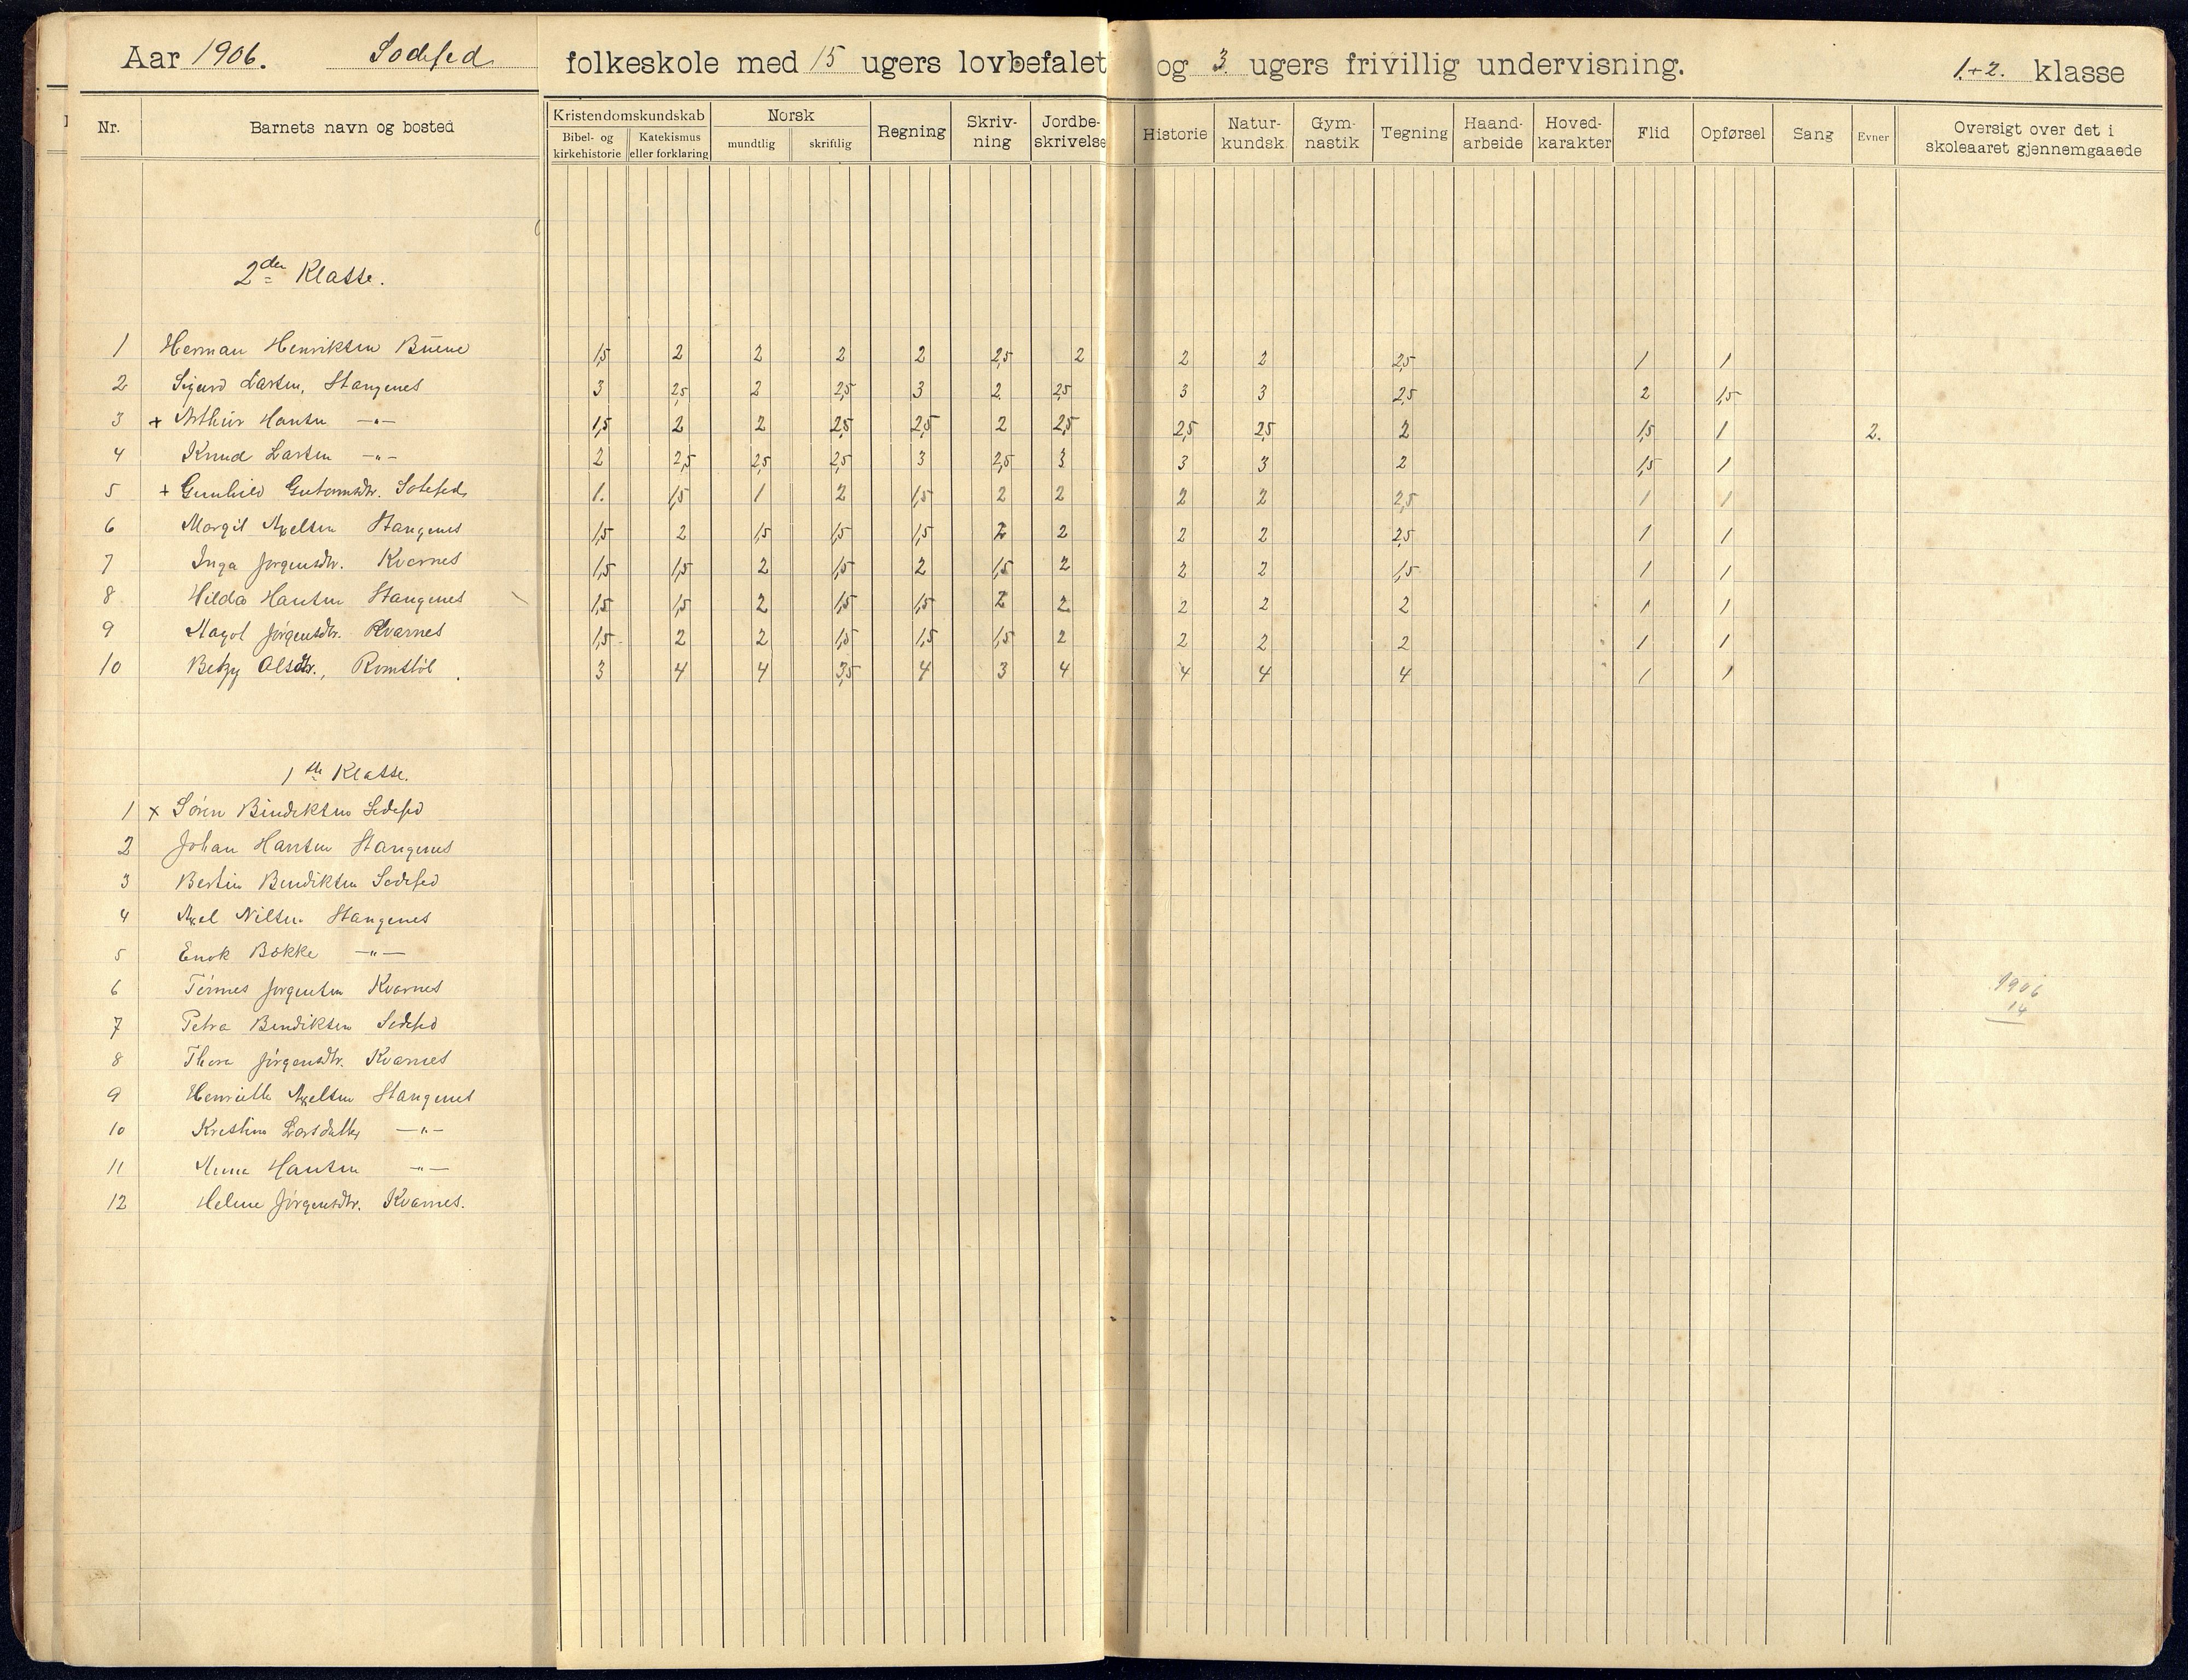 Aar 1906. Sodefed folkeskole med 15 ugers lovbefalet og 3 ugers frivillig undervisning. 1.+2. klasse
Nr. Barnets navn og bosted Kristendomskundskab Bibel- og kirkehistorie Katekismus eller forklaring Norsk mundtlig skriftlig Regning Skriv-ning Jordbe-skrivelse Historie Natur-kundsk. Gym-nastik Tegning Haand-arbeide Hoved-karakter Flid Opførsel Sang Evner Oversigt over det i skoleaaret gjennemgaaede
2den Klasse.
1 Herman Henriksen Buene 1,5 2 2 2 2 2,5 2 2 2 2,5 1 1
2 Sigurd Larsen, Stangenes 3 2,5 2 2,5 3 2 2,5 3 3 2,5 2 1,5
3 + Arthur Hansen —"— 1,5 2 2 2,5 2,5 2 2,5 2,5 2,5 2 1,5 1 2.
4 Knud Larsen —"— 2 2,5 2,5 2,5 3 2,5 3 3 3 2 1,5 1
5 + Gunhild Gutormsdtr. Sodefed 1. 1,5 1 2 1,5 2 2 2 2 2,5 1 1
6 Margit Axelsen Stangenes 1,5 2 1,5 1,5 1,5 2 2 2 2 2,5 1 1
7 Inga Jørgensdtr. Kvarnes 1,5 1,5 2 1,5 2 1,5 2 2 2 1,5 1 1
8 Hilda Hansen Stangenes 1,5 1,5 2 1,5 1,5 2 2 2 2 2 1 1
9 Jørgensdtr. Kvarnes 1,5 2 2 1,5 1,5 1,5 2 2 2 2 1 1
10 Betzy Olsdtr., Romstøl 3 4 4 3,5 4 3 4 4 4 4 1 1
1ste Klasse.
1 x Søren Bendiksen Sodefed
2 Johan Hansen Stangenes
3 Bertin Bendiksen Sodefed
4 Axel Nilsen Stangenes
5 Enok Bakke —"—
6 Jørgensen Kvarnes
1906
14
7 Petra Bendiksen Sodefed
8 Thora Jørgensdtr. Kvarnes
9 Henriette Axelsen Stangenes
10 Kristine Larsdatter —"—
11 Anna Hansen —"—
12 Helene Jørgensdtr. Kvarnes.